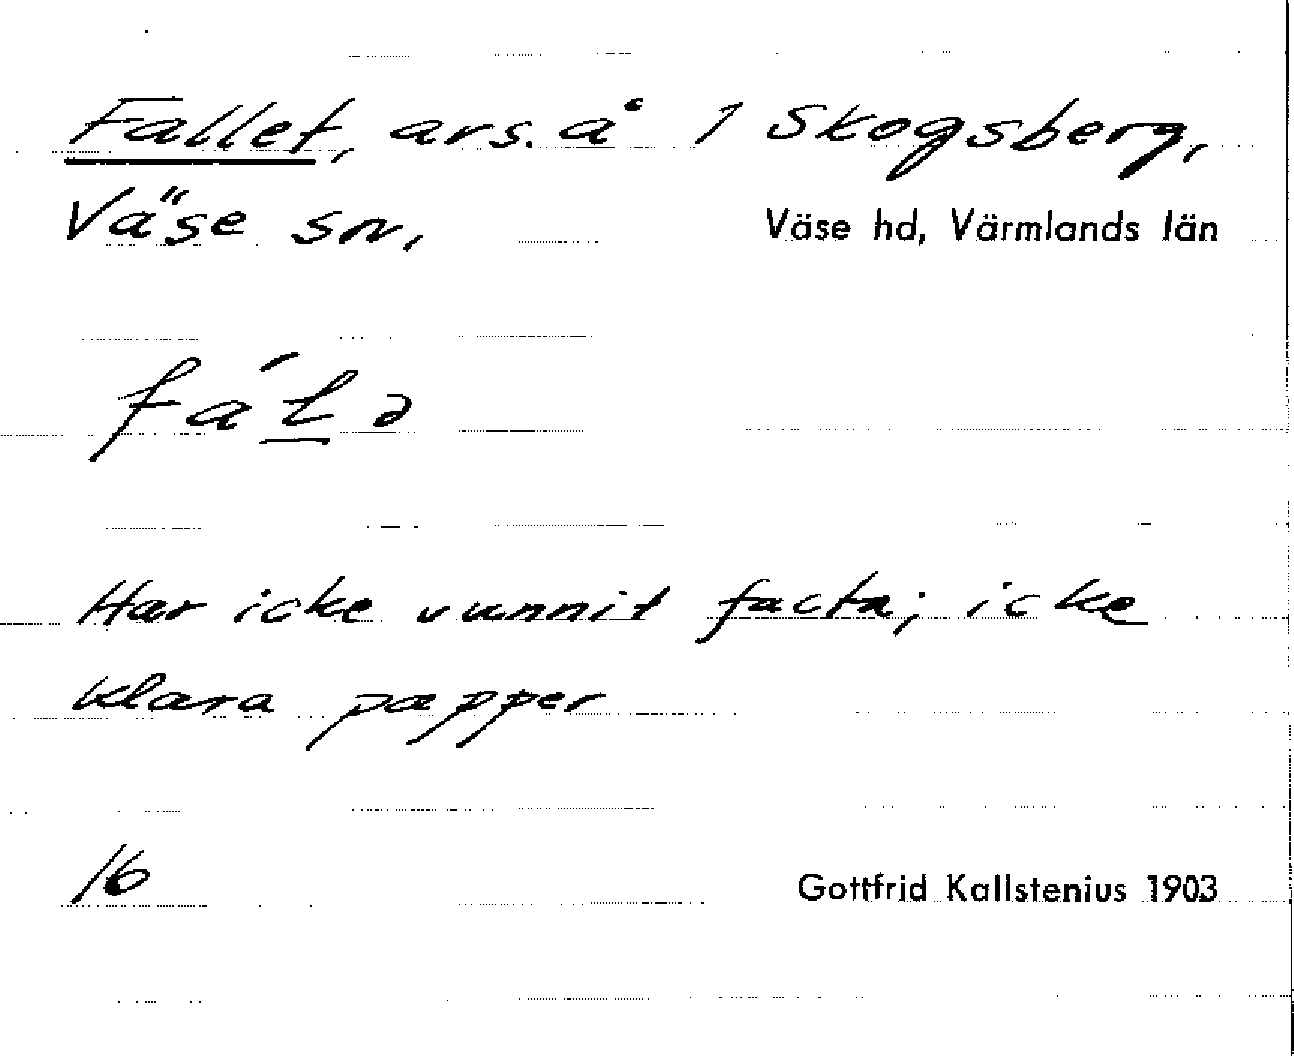 Fallet, avs. å 1 Skogsberg,
Väse sn,
Väse hd, Värmlands län
fáḻə
Har icke vunnit facta; icke
klara papper
16
Gottfrid Kallstenius 1903